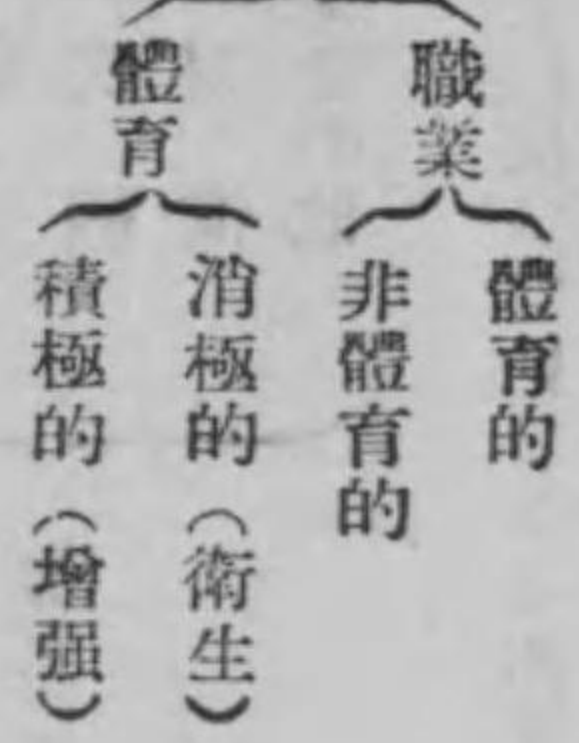 職業
體育的
非體育的
體育
消極的（衛生）
積極的（增强）